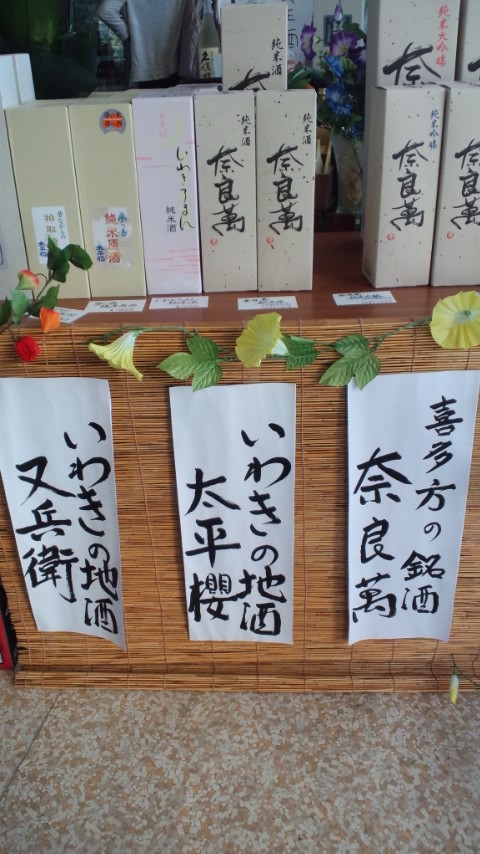 純米酒
奈
純米大吟醸
奈
純米原酒
いわきろまん
純米酒
純米酒
奈良萬
純米酒
奈良萬
純米吟醸
奈良萬
奈良萬
喜多方の銘酒
奈良萬
いわきの地酒
太平櫻
いわきの地酒
又兵衛